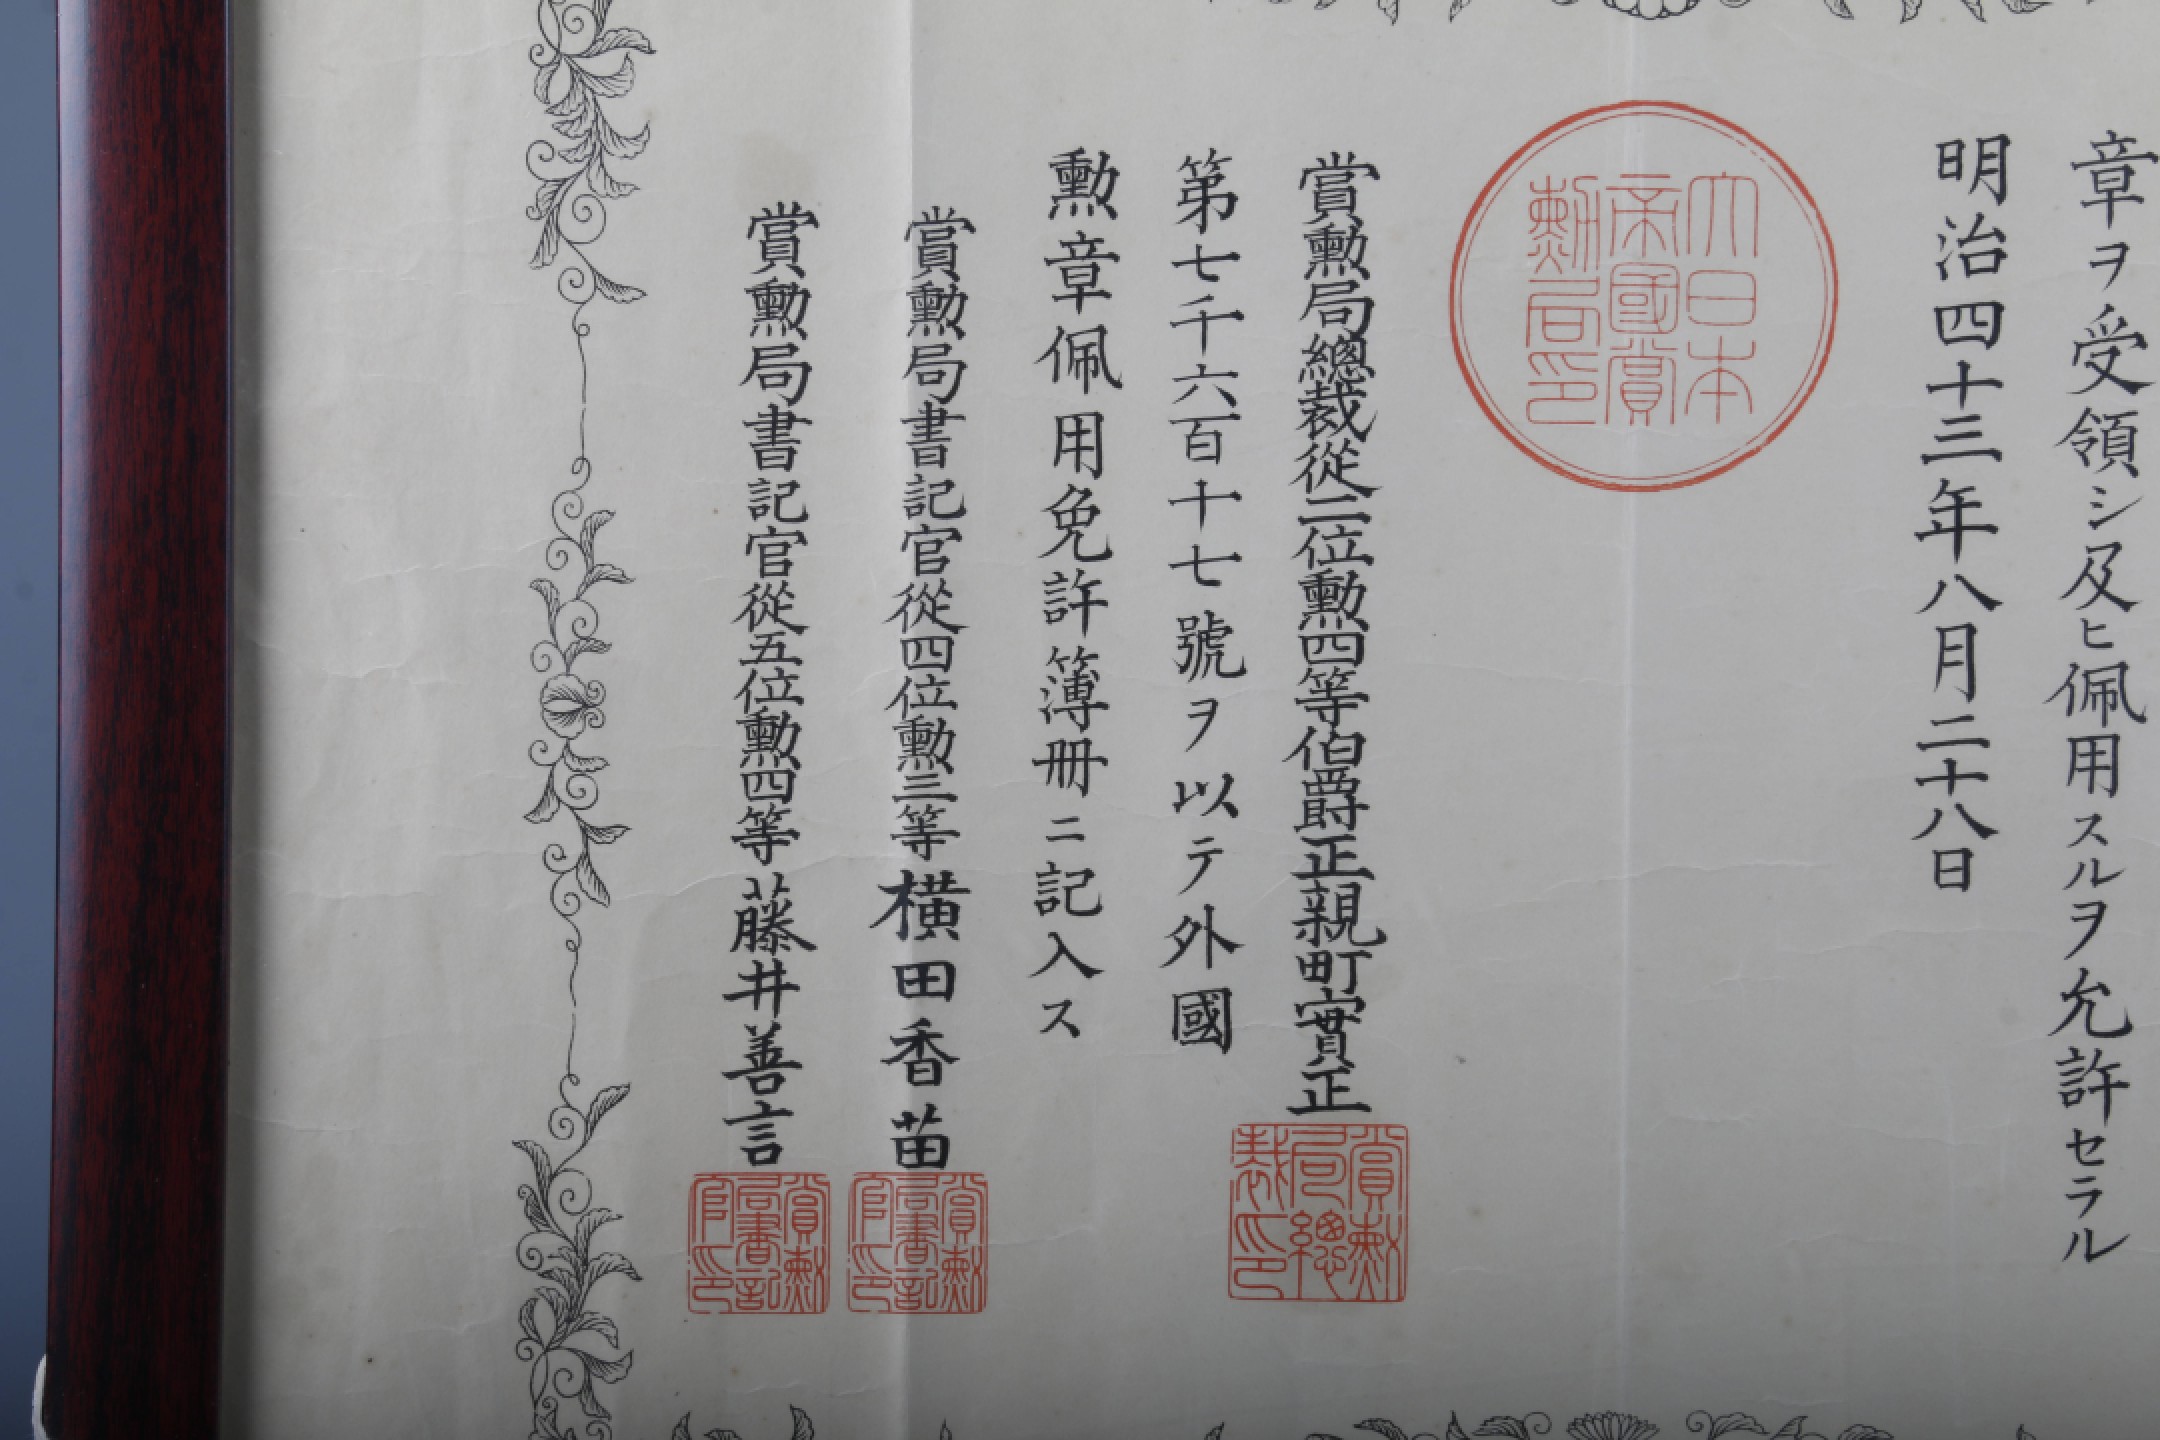 章ヲ受領シ及ヒ佩用スルヲ允許セラル
明治四十三年八月二十八日
大日本
帝國賞
勲局印
賞勲局總裁從二位勲四等伯爵正親町實正
賞勲
局總
裁印
第七千六百十七號ヲ以テ外國
勲章佩用免許簿冊ニ記入ス
賞勲局書記官從四位勲三等横田香苗
賞勲
局書記
官印
賞勲局書記官從五位勲四等藤井善言
賞勲
局書記
官印